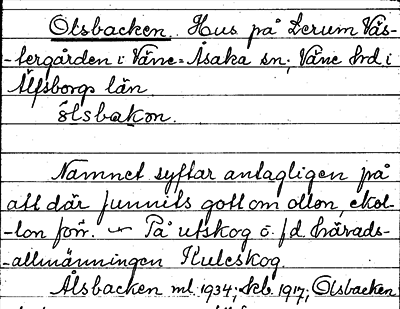 Olsbacken. Hus på Lerum Väs-
-tergården i Väne-Åsaka sn, Väne hd i
Älfsborgs län.
ölsbakon.
Namnet syftar antagligen på
att där funnits gott om ollon, ekol-
-lon förr. – På utskog o. f.d. härads-
-allmänningen
Ålsbacken ml. 1934; 1917; Olsbacken